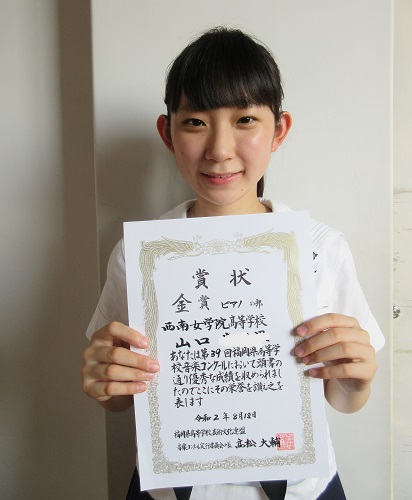 賞状
金賞 ピアノの部
西南女学院高等学校
山口
あなたは第39回福岡県高等学
校音楽コンクールにおいて頭書の
通り優秀な成績を収められまし
たのでここにその栄誉を讃え之を
表します
令和2年8月18日
福岡県高等学校芸術文化連盟
音楽コンクール実行委員会会長 高松大輔